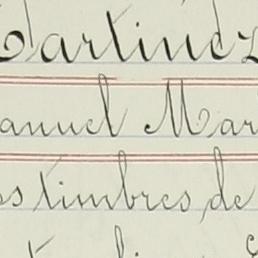 Martinez
anuel Mar
os timbres de